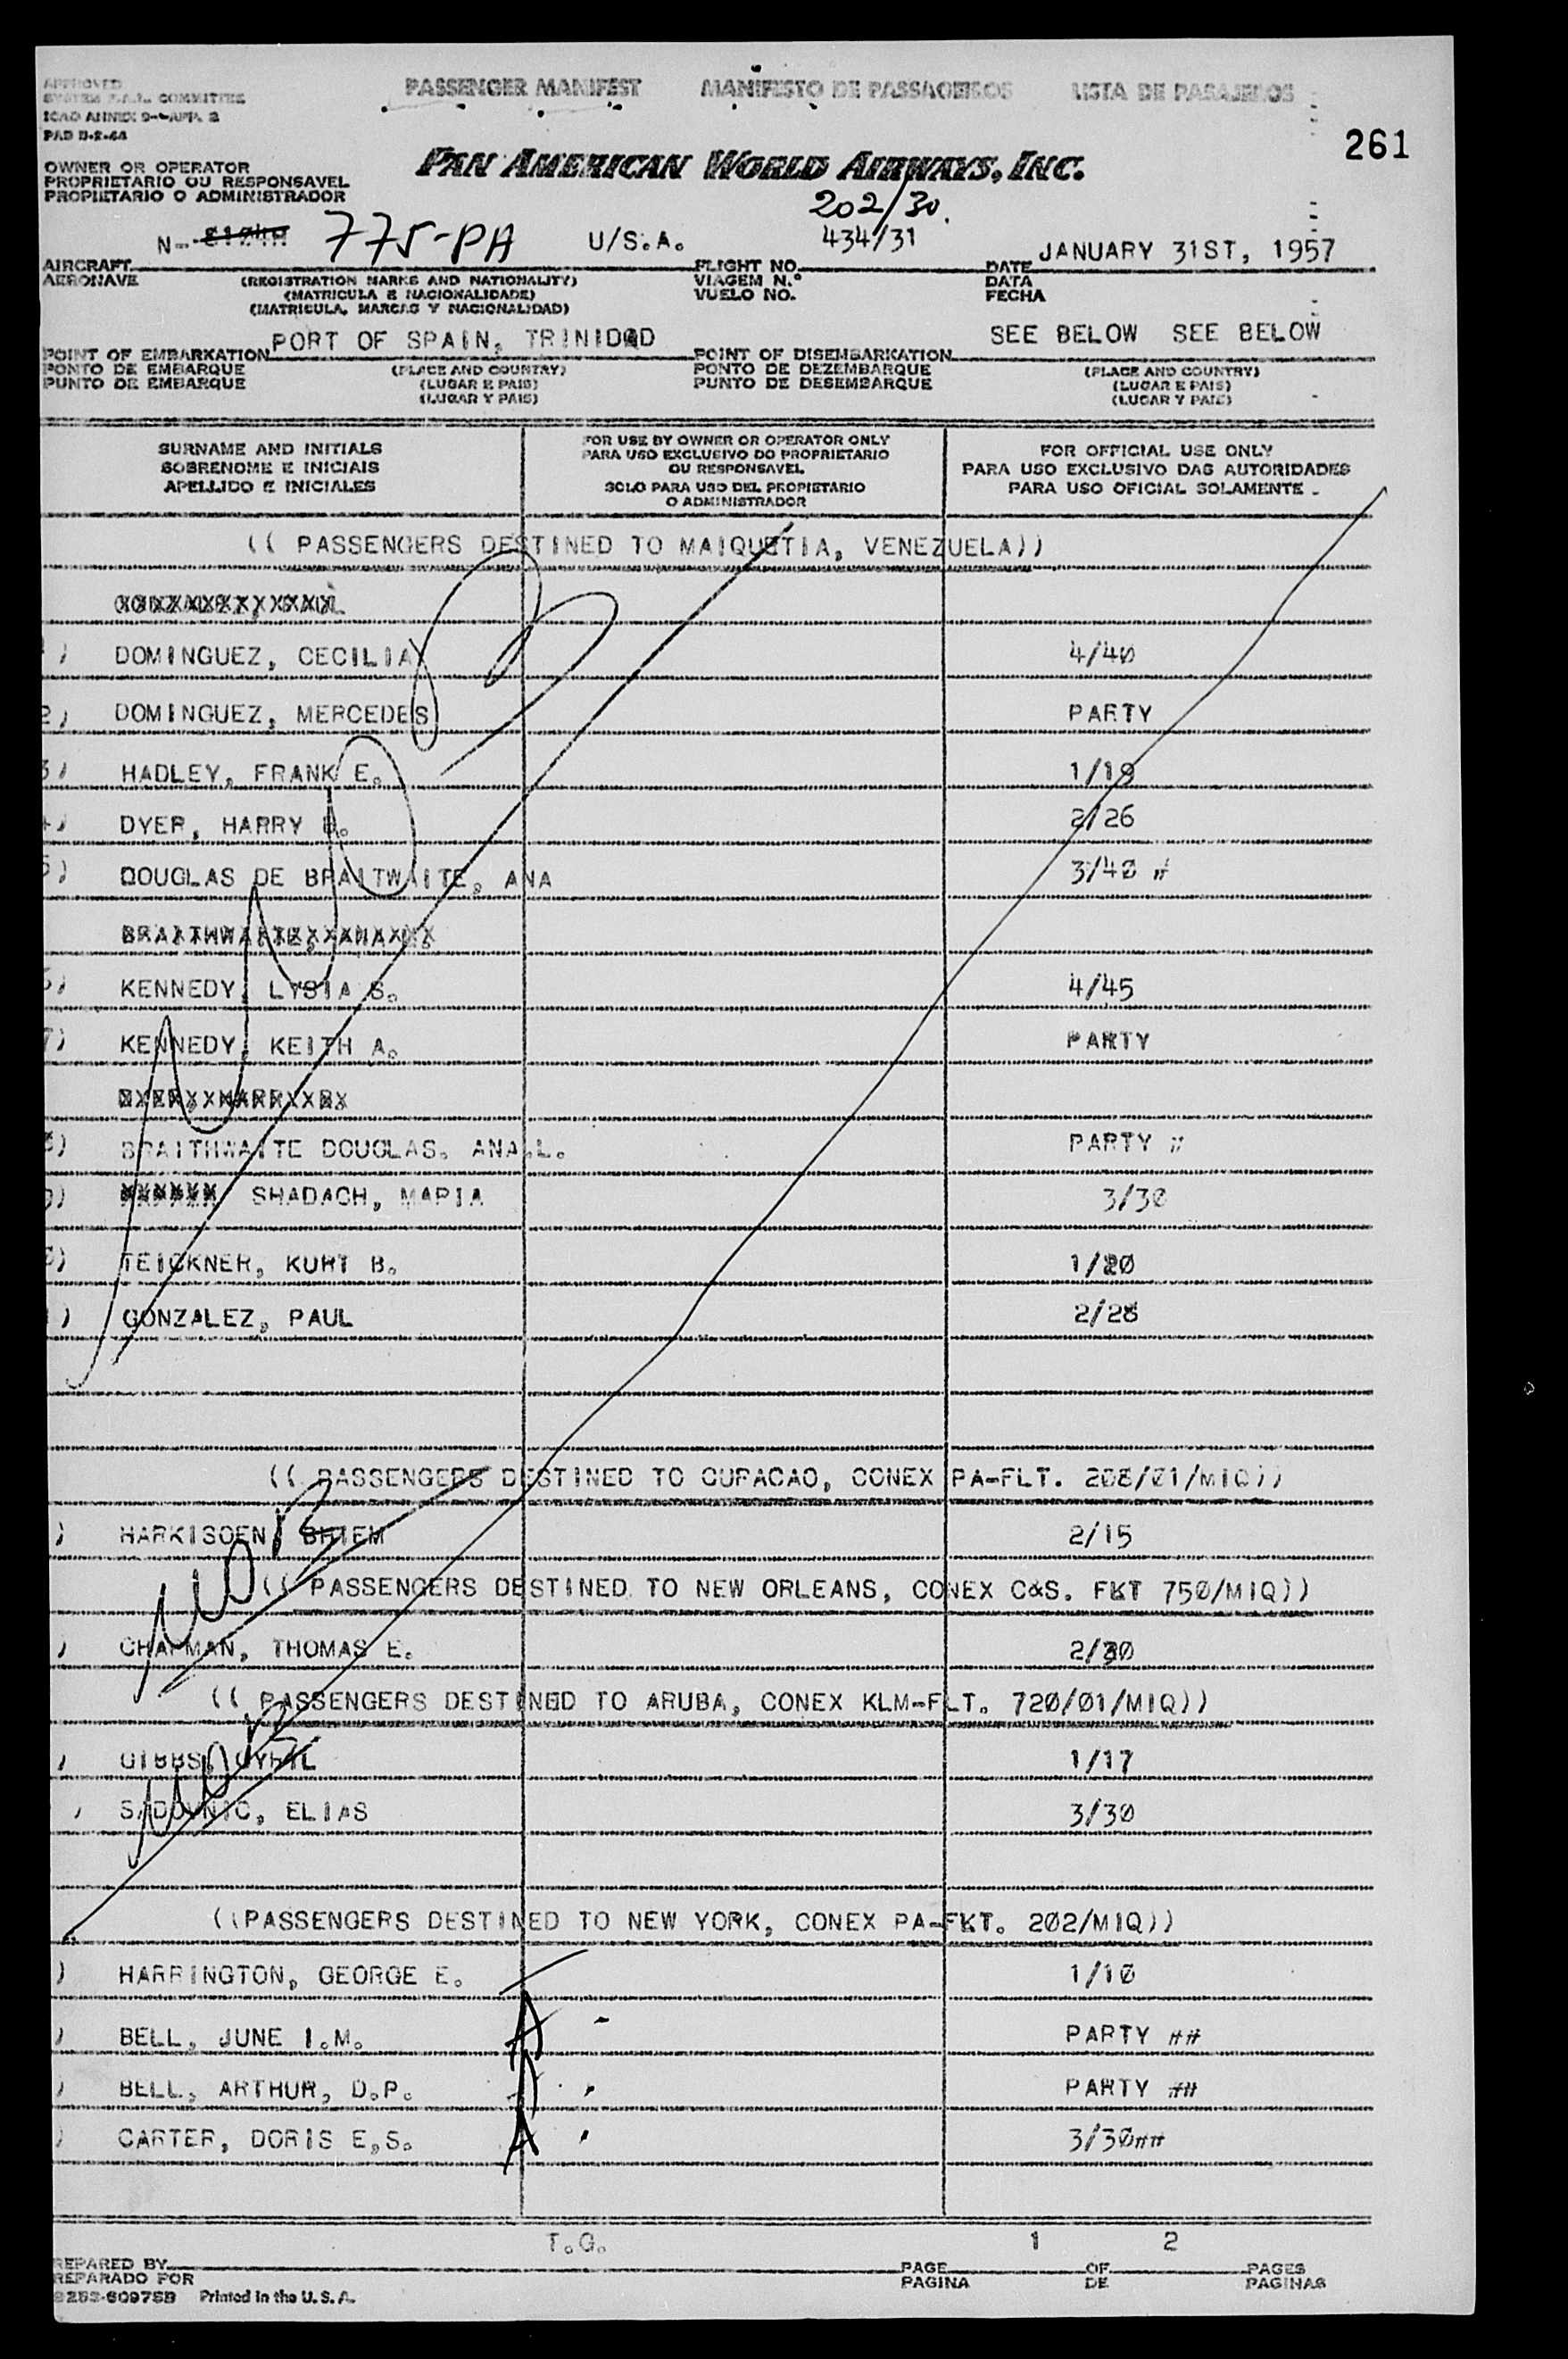 APPROVED
SYSTEM F.A.L. COMMITTEE
ICAO ANNEX 9-APP. 2
PAD D-2-44
PASSENGER MANIFEST MANIFESTO DE PASSAGEIROS LISTA DE PASAJEROS
261
PAN AMERICAN WORLD AIRWAYS, INC.
OWNER OR OPERATOR
PROPRIETARIO OU RESPONSAVEL
PROPIETARIO O ADMINISTRADOR
202/30.
N- 775-PA U/S.A. 434/31 JANUARY 31ST, 1957
AIRCRAFT FLIGHT NO. DATE
AERONAVE (REGISTRATION MARKS AND NATIONALITY) VIAGEM N.º DATA
(MATRICULA E NACIONALIDADE) VUELO NO. FECHA
(MATRICULA, MARCAS Y NACIONALIDAD)
PORT OF SPAIN, TRINIDAD SEE BELOW SEE BELOW
POINT OF EMBARKATION POINT OF DISEMBARKATION
PONTO DE EMBARQUE (PLACE AND COUNTRY) PONTO DE DEZEMBARQUE (PLACE AND COUNTRY)
PUNTO DE EMBARQUE (LUGAR E PAIS) PUNTO DE DESEMBARQUE (LUGAR E PAIS)
(LUGAR Y PAIS) (LUGAR Y PAIS)
SURNAME AND INITIALS
SOBRENOME E INICIAIS
APELLIDO E INICIALES
FOR USE BY OWNER OR OPERATOR ONLY
PARA USO EXCLUSIVO DO PROPRIETARIO
OU RESPONSAVEL
SOLO PARA USO DEL PROPIETARIO
O ADMINISTRADOR
FOR OFFICIAL USE ONLY
PARA USO EXCLUSIVO DAS AUTORIDADES
PARA USO OFICIAL SOLAMENTE
(( PASSENGERS DESTINED TO MAIQUETIA, VENEZUELA))
) DOMINGUEZ, CECILIA 4/40
2) DOMINGUEZ, MERCEDES PARTY
3) HADLEY, FRANK E. 1/19
4) DYER, HARRY B. 2/26
5) DOUGLAS DE BRAITWAITE, ANA 3/40 #
6) KENNEDY, LYSIA S. 4/45
7) KENNEDY, KEITH A. PARTY
8) BRAITHWAITE DOUGLAS. ANA.L. PARTY #
9) SHADACH, MARIA 3/30
0) TEICKNER, KURT B. 1/20
) GONZALEZ, PAUL 2/28
(( PASSENGERS DESTINED TO CURACAO, CONEX PA-FLT. 208/01/MIQ))
) HARKISOEN, BHIEM 2/15
(( PASSENGERS DESTINED TO NEW ORLEANS, CONEX C&S. FKT 750/MIQ))
) CHAPMAN, THOMAS E. 2/30
(( PASSENGERS DESTINED TO ARUBA, CONEX KLM-FLT. 720/01/MIQ))
) GIBBS, CYRIL 1/17
) ELIAS 3/30
((PASSENGERS DESTINED TO NEW YORK, CONEX PA-FKT. 202/MIQ))
) HARRINGTON, GEORGE E. 1/10
) BELL, JUNE I.M. PARTY ##
) BELL, ARTHUR, D.P. PARTY ##
) CARTER, DORIS E.S. 3/30##
T.G. 1 2
REPARED BY PAGE OF PAGES
REPARADO POR PAGINA DE PAGINAS
Printed in the U.S.A.